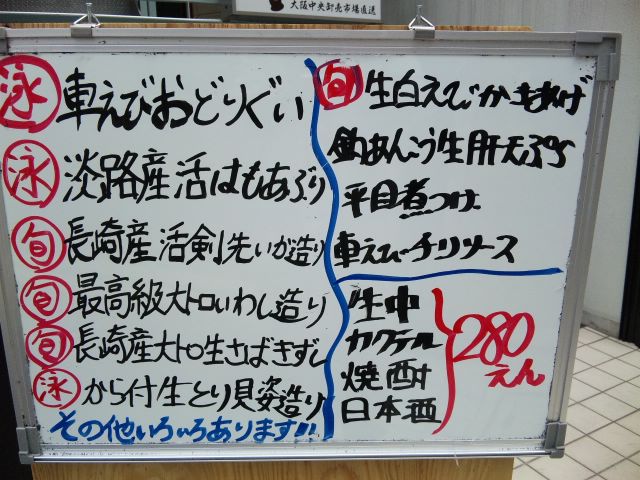 大阪中央卸売市場直送
泳 車えびおどりぐい
泳 淡路産活はもあぶり
旬 長崎産活剣先いか造り
旬 最高級大トロいわし造り
旬 長崎産大トロ生さばきずし
泳 から付生とり貝姿造り
その他いろいろあります!!
旬 生白えびかきあげ
釣あんこう生肝天ぷら
平目煮つけ
車えびチリソース
生中
カクテル
焼酎
日本酒
280えん